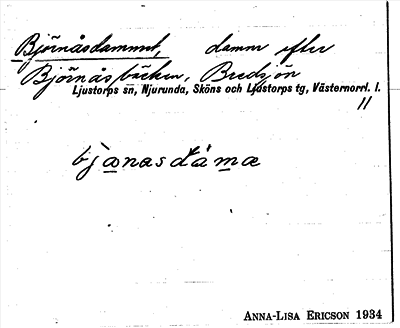 Björnåsdammet, damm efter
Björnåsbäcken, Bredsjön
Ljustorps sn, Njurunda, Sköns och Ljustorps tg, Västernorrl. l.
11
bjæ̀nasdåmæ
ANNA-LISA ERICSON 1934